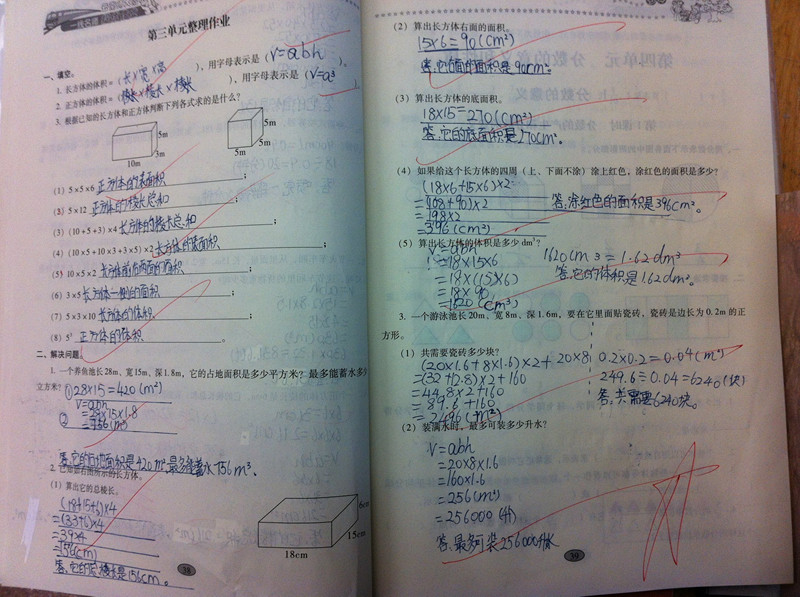 第三单元整理作业
一、填空。
1. 长方体的体积=(长×宽×高), 用字母表示是 (V=abh)
2. 正方体的体积=(棱长×棱长×棱长), 用字母表示是 (V=a³)。
3. 根据已知的长方体和正方体判断下列各式求的是什么?
5m 3m 10m
5m 5m 5m
(1) 5×5×6 正方体的表面积;
(2) 5×12 正方体的棱长总和;
(3) (10+5+3)×4 长方体的棱长总和;
(4) (10×5+10×3+3×5)×2 长方体的表面积;
(5) 10×5×2 长方体前后两面的面积;
(6) 3×5 长方体一侧的面积;
(7) 5×3×10 长方体的体积;
(8) 5³ 正方体的体积。
二、解决问题。
1. 一个养鱼池长28m, 宽15m, 深1.8m, 它的占地面积是多少平方米? 最多能蓄水多少
立方米?
①28×15=420(m²)
V=abh
② =28×15×1.8
=756(m³)
答:它的占地面积是420m²,最多能蓄水756m³。
2. 已知如右图所示的长方体。
(1) 算出它的总棱长。
(18+15+6)×4
=(33+6)×4
=39×4
=156(cm)
答:它的总棱长是156cm。
6cm
15cm
18cm
38
(2) 算出长方体右面的面积。
15×6=90(cm²)
答:它右面的面积是90cm²。
(3) 算出长方体的底面积。
18×15=270(cm²)
答:它的底面积是270cm²。
(4) 如果给这个长方体的四周 (上、下面不涂) 涂上红色, 涂红色的面积是多少?
(18×6+15×6)×2
=(108+90)×2
=198×2
=396(cm²)
答:涂红色的面积是396cm²。
(5) 算出长方体的体积是多少 dm³?
V=abh
=18×15×6
=18×(15×6)
=18×90
=1620(cm³)
1620cm³=1.62dm³
答:它的体积是1.62dm³。
3. 一个游泳池长20m、宽8m、深1.6m, 要在它里面贴瓷砖, 瓷砖是边长为0.2m的正
方形。
(1) 共需要瓷砖多少块?
(20×1.6+8×1.6)×2+20×8
=(32+12.8)×2+160
=44.8×2+160
=89.6+160
=249.6(m²)
0.2×0.2=0.04(m²)
249.6÷0.04=6240(块)
答:共需要6240块。
(2) 装满水时, 最多可装多少升水?
V=abh
=20×8×1.6
=160×1.6
=256(m³)
=256000(升)
答:最多可装256000升水
39